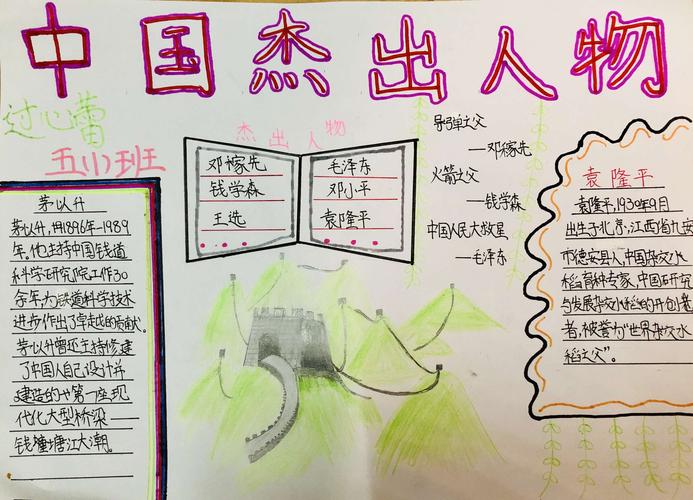 中国杰出人物
过心蕾
五(1)班
茅以升
茅以升,用1896年-1989
年,他主持中国铁道
科学研究院工作30
余年,为铁道科学技术
进步作出了卓越的贡献。
茅以升曾还主持修建
了中国人自己设计并
建造的第一座现
代化大型桥梁——
钱塘江大潮。
杰出人物
邓稼先
钱学森
王选
毛泽东
邓小平
袁隆平
导弹之父
——邓稼先
火箭之父
——钱学森
中国人民大救星
——毛泽东
袁隆平
袁隆平,1930年9月
出生于北京,江西省九安
市德安县人,中国杂交水
稻育种专家,中国研究
与发展杂交水稻的开创者
者,被誉为“世界杂交水
稻之父”。